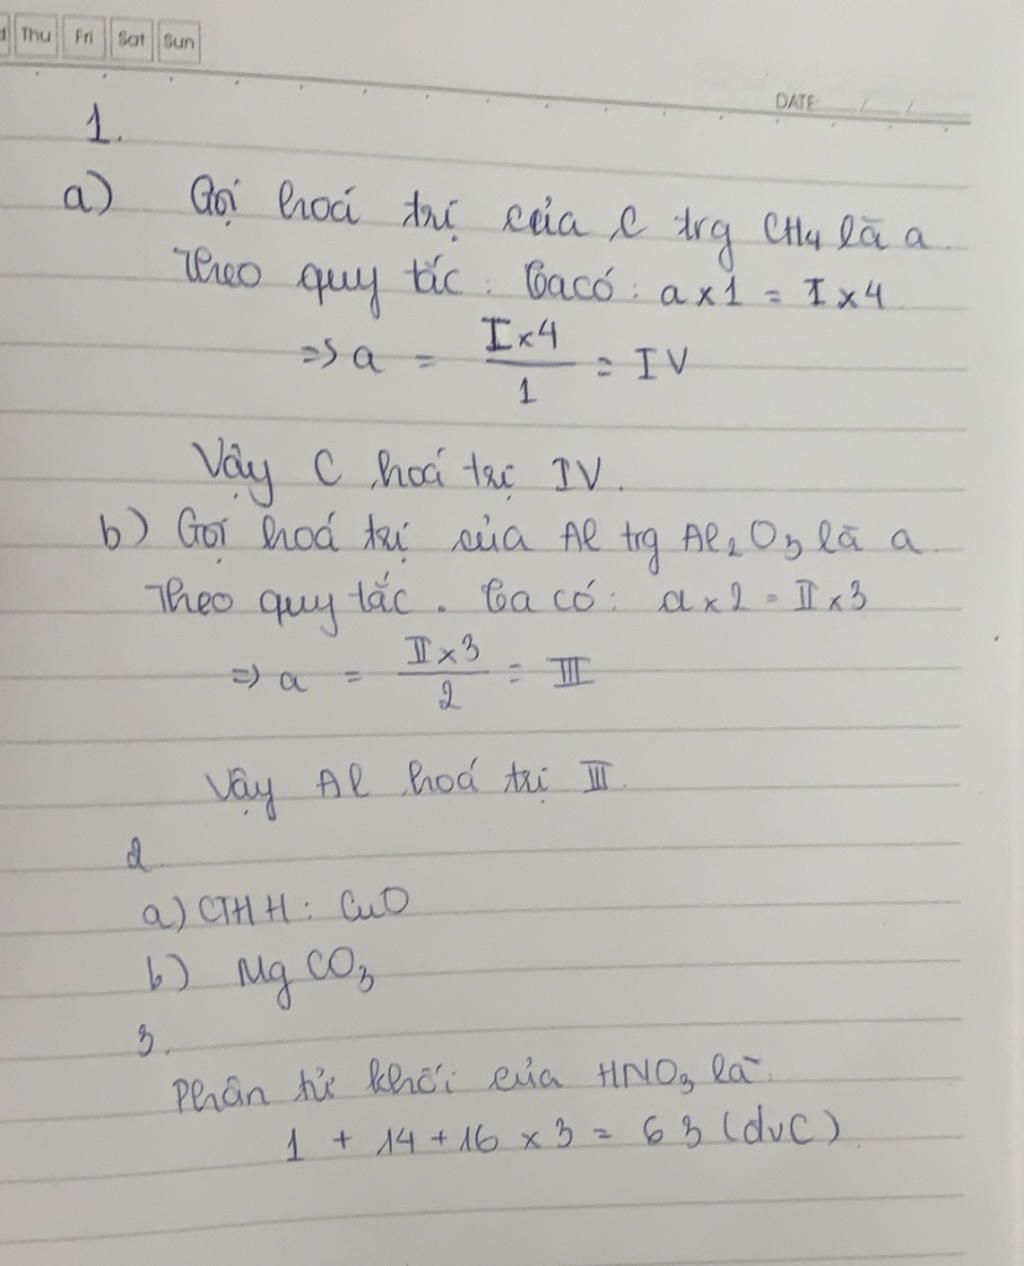 Thu Fri Sat Sun
DATE: / /
1.
a) Gọi hoá trị của C trg CH₄ là a
Theo quy tắc : Ta có : a x 1 = I x 4
=> a = I x 4 / 1 = IV
Vậy C hoá trị IV.
b) Gọi hoá trị của Al trg Al₂O₃ là a
Theo quy tắc . Ta có : a x 2 = II x 3
=> a = II x 3 / 2 = III
Vậy Al hoá trị III.
2.
a) CTHH : CuO
b) MgCO₃
3.
Phân tử khối của HNO₃ là
1 + 14 + 16 x 3 = 63 (dvC)